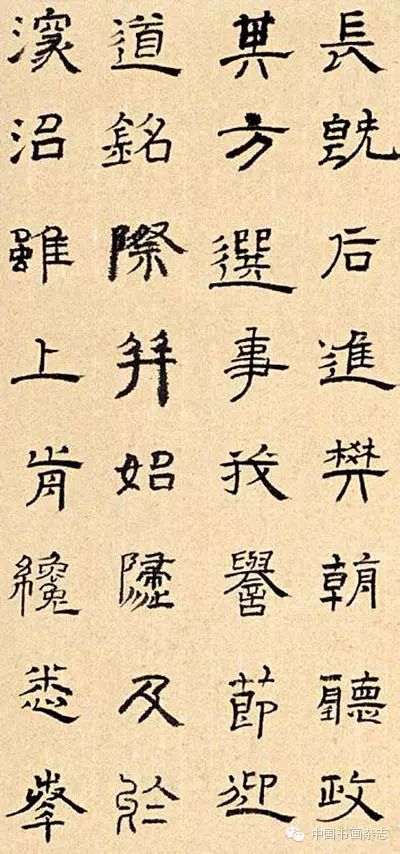 長既后進樊朝聽政
其方選事我譽節迎
道銘際并始及於
雖上肯纔悉峯
中国书画杂志